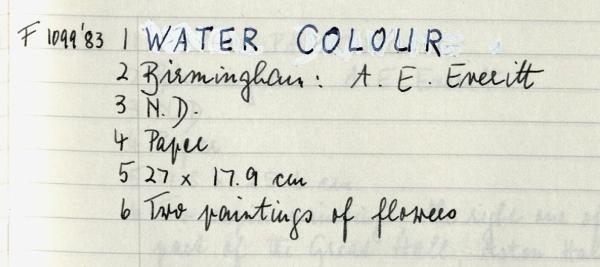 F 1099'83 1 WATER COLOUR
2 Birmingham: A. E. Everitt
3 N.D.
4 Paper
5 27 x 17.9 cm
6 Two paintings of flowers